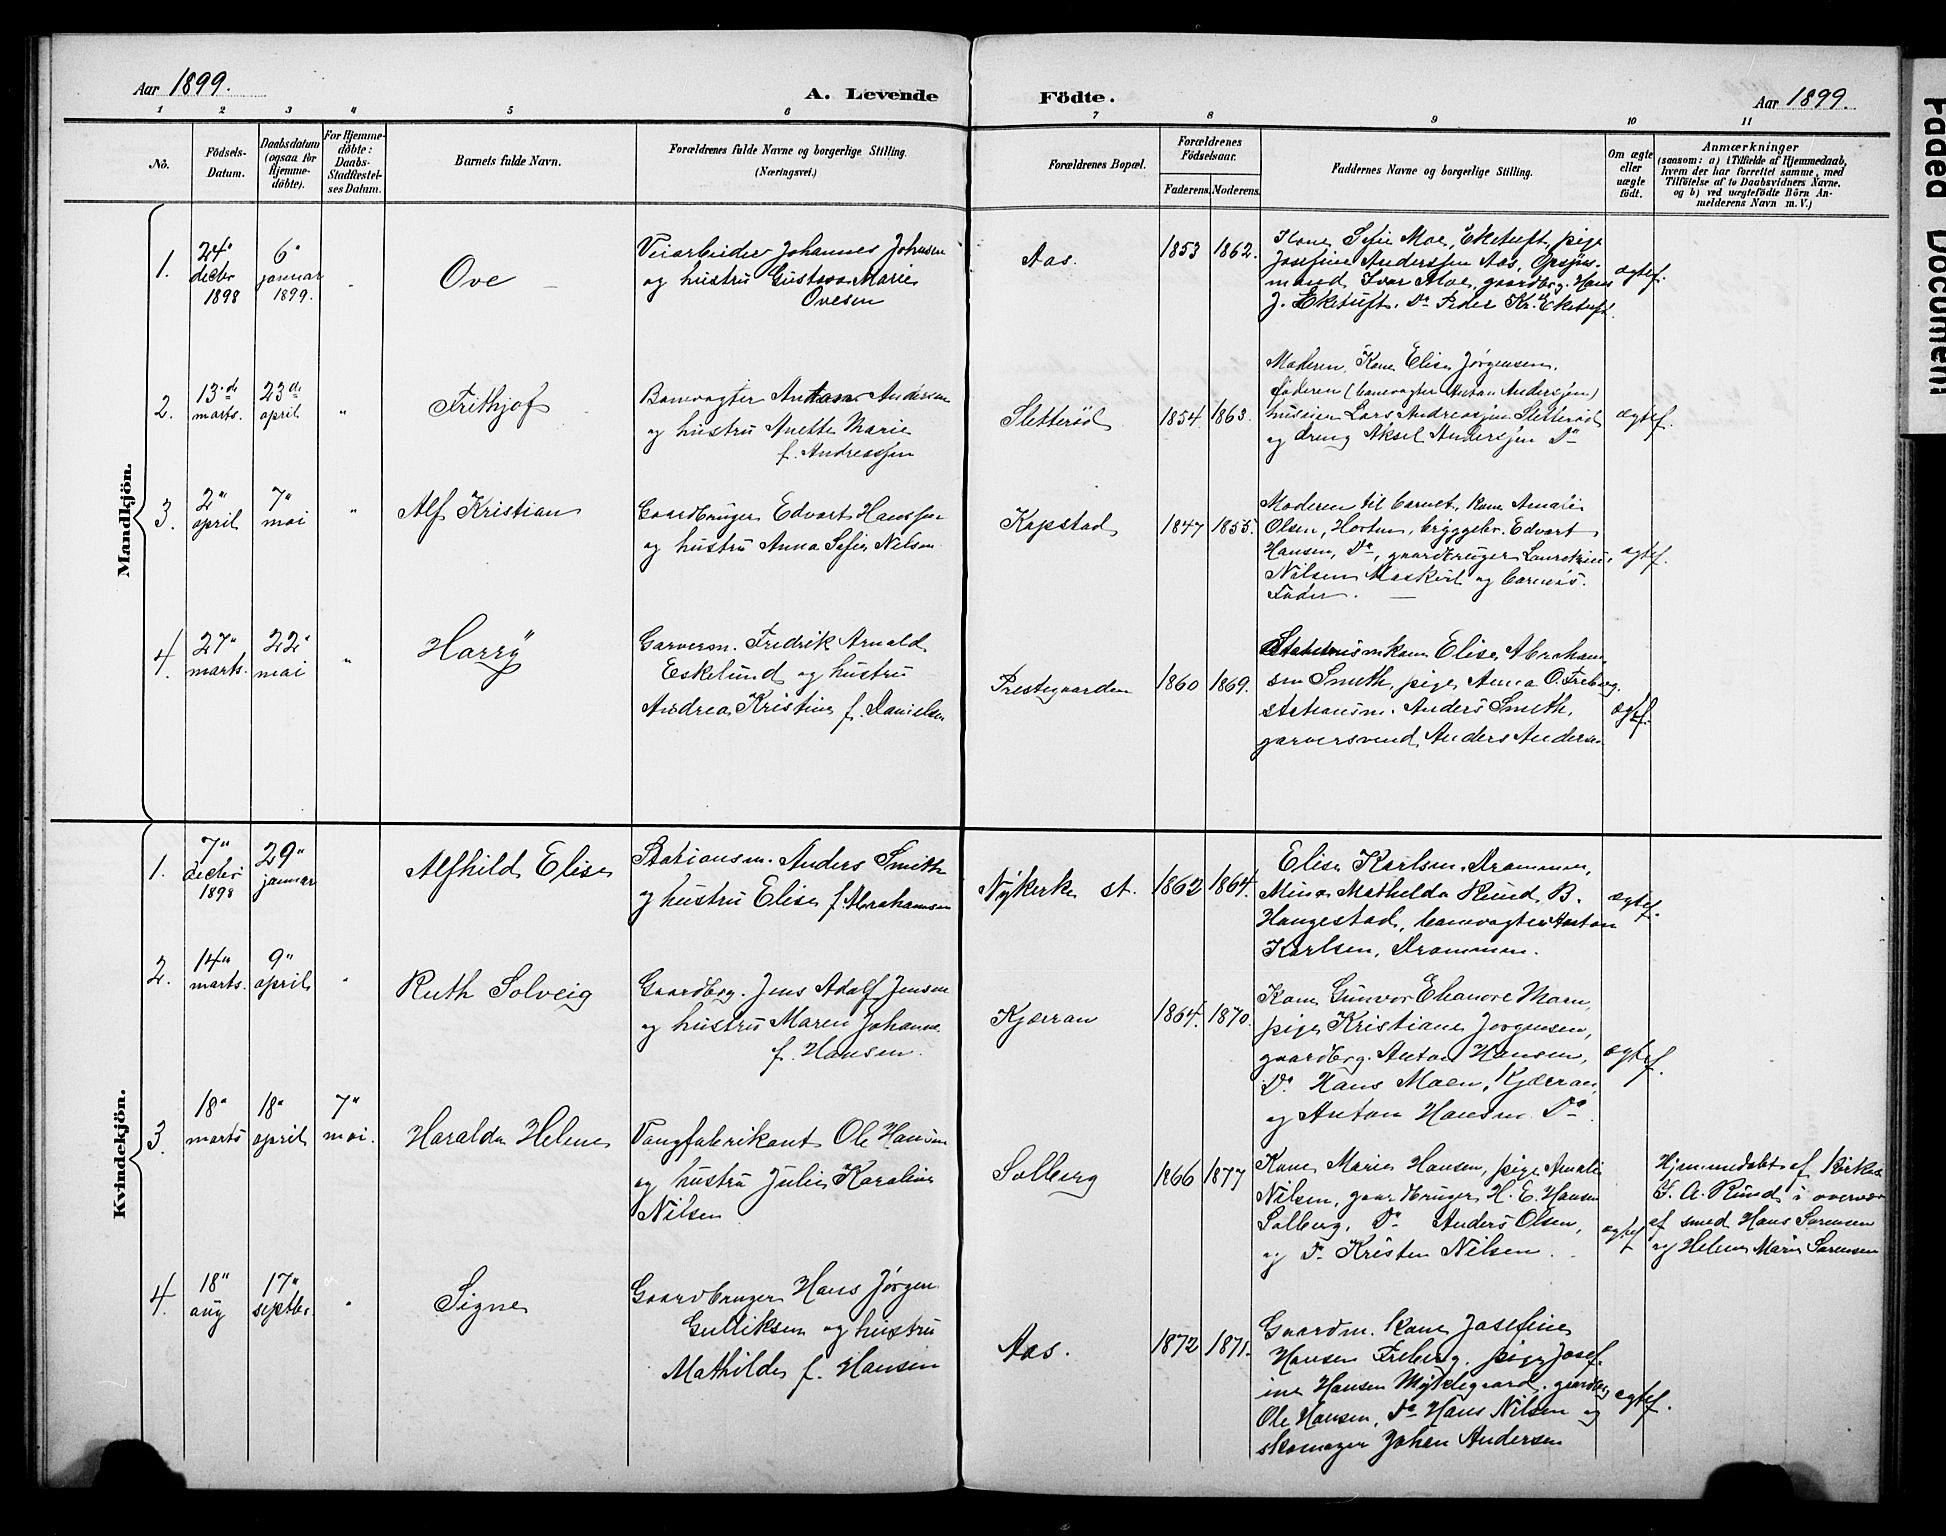 Aar 1899.
A. Levende
Födte.
Aar 1899.
1 2 3 4 5 6 7 8 9 10 11
No.
Födsels-
Datum.
Daabsdatum
(ogsaa for
Hjemme-
döbte).
For Hjemme-
döbte:
Daabs-
Stadfæstel-
ses Datum.
Barnets fulde Navn.
Forældrenes fulde Navne og borgerlige Stilling.
(Næringsvei.)
Forældrenes Bopæl.
Forældrenes
Födselsaar.
Faderens. Moderens.
Faddernes Navne og borgerlige Stilling.
Om ægte
eller
uægte
födt.
Anmærkninger
(saasom: a) i Tilfælde af Hjemmedaab,
hvem der har forrettet samme, med
Tilföielse af to Daabsvidners Navne.
og b) ved uægtefödte Börn An-
melderens Navn m. V.)
Mandkjön.
1.
24"
decbr
1898
6"
januar
1899.
Ove
Veiarbeider Johannes Johnsen
og hustru Gustava Marie
Ovesen
Aas.
1853 1862.
Kone Sofie Moe, Eketuft, pige
Josefine Anderssen Aas, Opsyns-
mand Ivar Moe, gaardbrg. Hans
J. Eketuft. Do Peder Kr. Eketuft.
ægtef.
2.
13de
marts.
23de
april
"
Frithjof
Banevogter Anton Andersen
og hustru Anette Marie
f. Andreassen
Sletterød
1854 1863.
Moderen, Kone Elise Jørgensen,
faderen (banevogter Anton Anderssen)
huseier Lars Andreassen Sletterød
og dreng Aksel Anderssen Do
ægtef.
3.
2"
april
7"
mai
"
Alf Kristian
Gaardbruger Edvart Hanssen
og hustru Anna Sofie Nilsen
Kopstad
1847 1855.
Moderen til barnet, kone Amalie
Olsen, Horten, bryggebr. Edvart
Hansen, Do, gaardbruger Lauretzius
Nilsen Maskvil og barnets
Fader.
ægtef.
4.
27"
marts.
22"
mai
"
Harry
Garversv. Fredrik Arnold
Eskelund og hustru
Andrea Kristine f. Danielsen
Prestegaarden
1860 1869.
Stationsm kone Elise Abraham-
sen Smith, pige Anna O. Freberg,
stationsm. Anders Smith,
garversvend Anders Andersen
ægtf.
Kvindekjön.
1.
7"
decbr
1898
29"
januar
Alfhild Elise
Stationsm. Anders Smith
og hustru Elise f. Abrahamsen
Nykirke st.
1862 1864.
Elise Karlsen, Drammen,
Mina Mathilda Rund, B.
Haugestad, banevogter Anton
Karlsen, Drammen.
ægtef.
2.
14"
marts.
9"
april
"
Ruth Solveig
Gaardbrg. Jens Adolf Jensen
og hustru Maren Johanne
f. Hansen.
Kjærran
1864. 1870.
Kone Gunvor Eleanore Moen,
pige Kristiane Jørgensen,
gaardbrg. Anton Hansen,
Do Hans Moen, Kjærran,
og Anton Hansen Do.
ægtef.
3.
18"
marts
18"
april
7"
mai.
Haralda Helene
Vangfabrikant Ole Hansen
og hustru Julie Karoline
Nilsen
Solberg
1866 1877
Kone Marie Hansen, pige Amalie
Nilsen, gaardbruger H. E. Hansen
Solberg, Do Anders Olsen,
og Do Kristen Nilsen.
ægtef
Hjemmedøbt af Kirkes.
G. A. Rund i overvær
af smed Hans Sørensen
og Helene Marie Sørensen
4.
18"
aug
17"
septbr.
"
Signe
Gaardbruger Hans Jørgen
Gulliksen og hustru
Mathilde f. Hansen
Aas.
1872 1871.
Gaardm. kone Josefine
Hansen Freberg, pige Josef-
ine Hansen Myklegaard, gaardbrg
Ole Hansen, Do Hans Nilsen og
skomager Johan Andersen
ægtef.
Faded Document